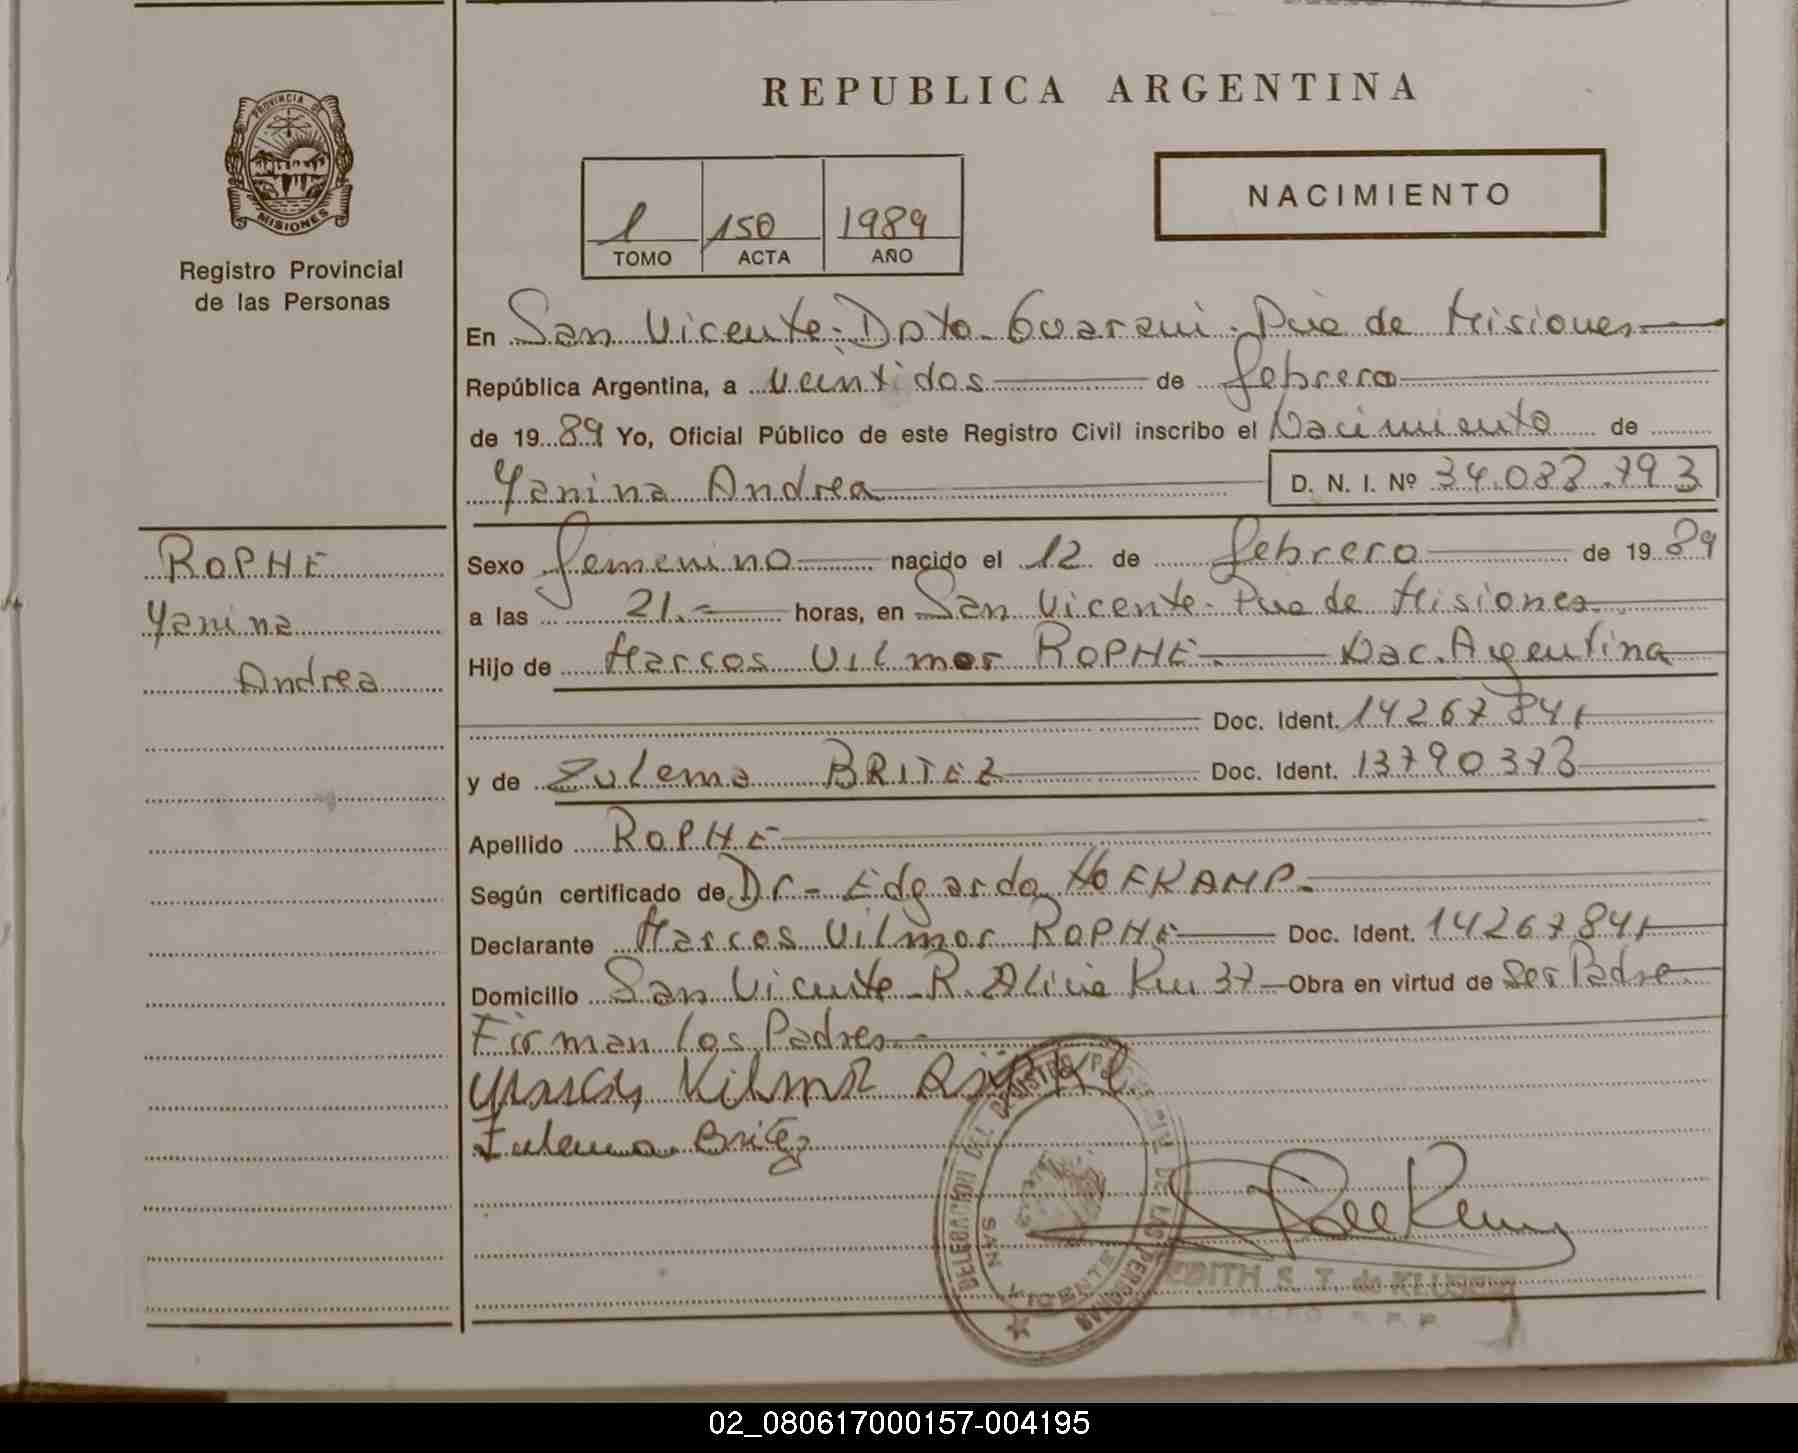 REPUBLICA ARGENTINA
PROVINCIA DE
MISIONES
Registro Provincial
de las Personas
1 150 1989
TOMO ACTA AÑO
NACIMIENTO
En San Vicente. Dpto. Guarani. Pcia de Misiones
República Argentina, a veintidos de febrero
de 1989 Yo, Oficial Público de este Registro Civil inscribo el Nacimiento de
Yanina Andrea D. N. I. Nº 34.083.793
ROPHE
Yanina
Andrea
Sexo femenino nacido el 12 de febrero de 1989
a las 21.= horas, en San Vicente. Pcia de Misiones
Hijo de Marcos Vilmor ROPHE. Nac. Argentina
Doc. Ident. 14267841
y de Zulema BRITEZ Doc. Ident. 13790373
Apellido ROPHE
Según certificado de Dr. Edgardo HOFKAMP.
Declarante Marcos Vilmor ROPHE Doc. Ident. 14267841
Domicilio San Vicente. R. Alicia Km 37 Obra en virtud de Ser Padre
Firman los Padres
Marcos Vilmor
Zulema Britez
DELEGACION DEL REGISTRO DE LAS PERSONAS
SAN VICENTE
EDITH S. T. de
02_080617000157-004195